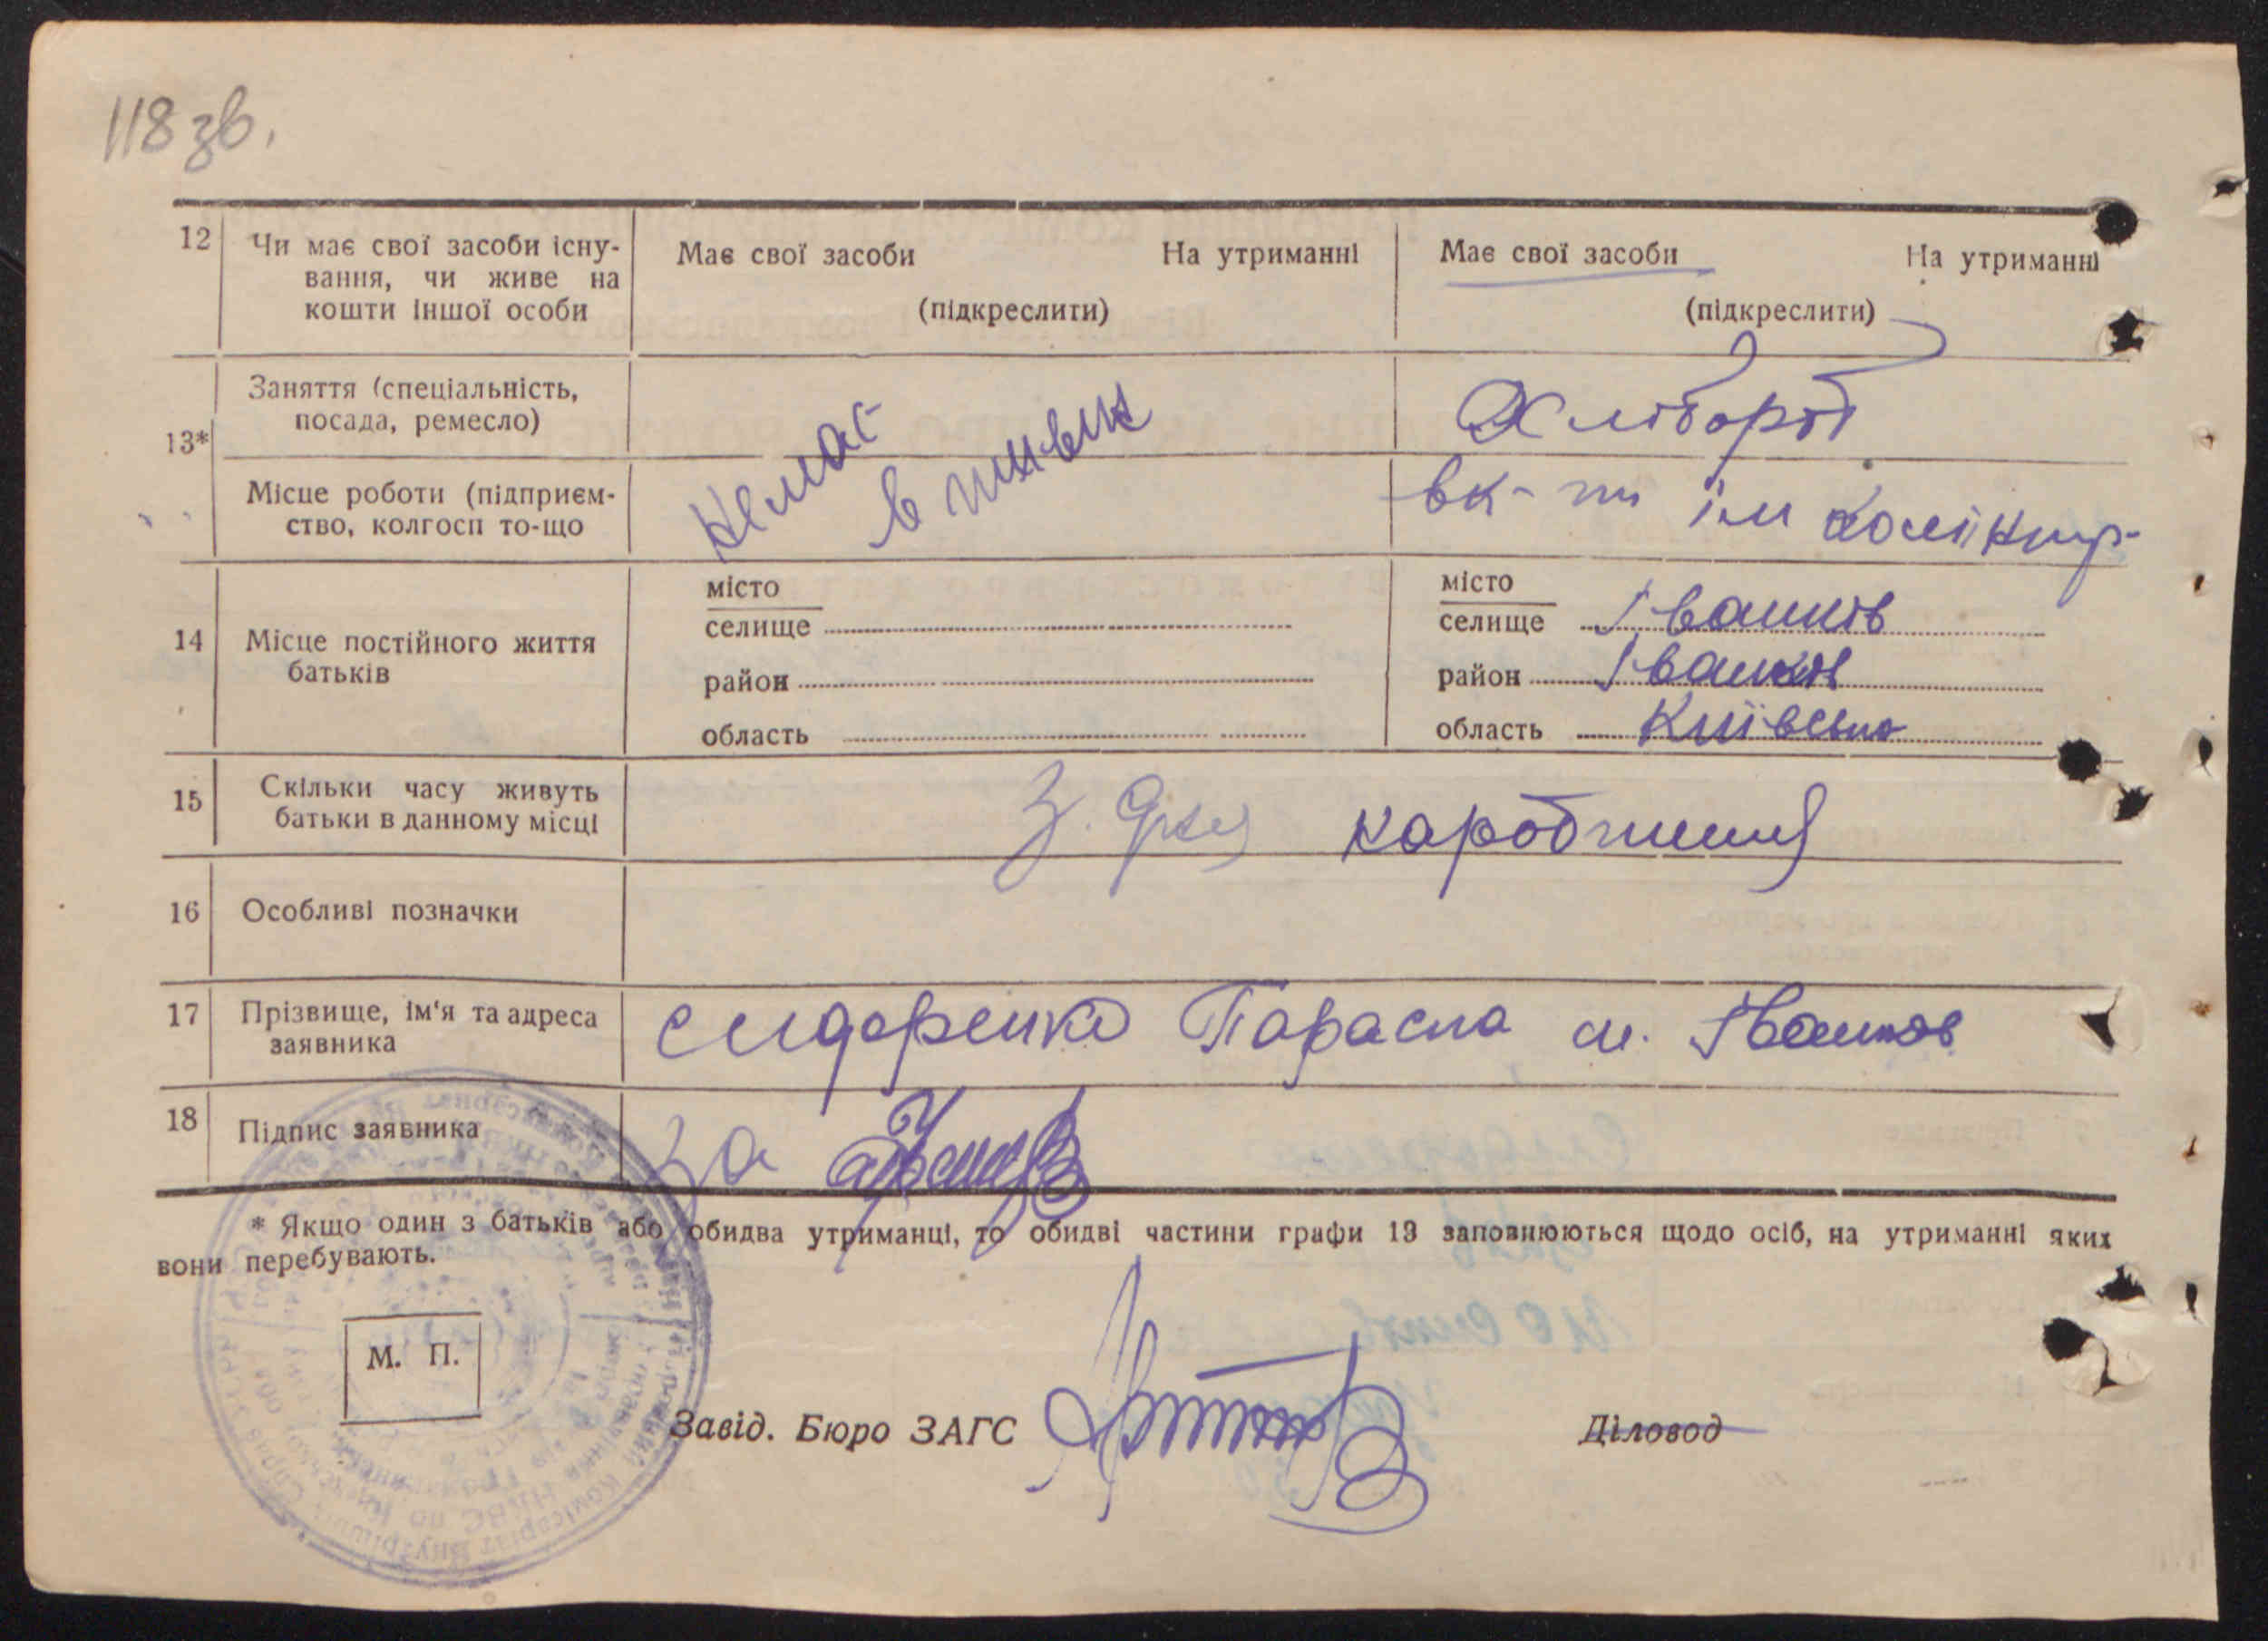 118 зв.
12 Чи має свої засоби існу-
вання, чи живе на
кошти іншої особи
Має свої засоби На утриманні
(підкреслити)
Має свої засоби На утриманні
(підкреслити)
13*
Заняття (спеціальність,
посада, ремесло)
Хлібороб
Місце роботи (підприєм-
ство, колгосп то-що
немає
в живих
ім
14 Місце постійного життя
батьків
місто
селище
район
область
місто
селище Іванків
район Іванків
область Київська
15 Скільки часу живуть
батьки в данному місці
З. Дня народження
16 Особливі позначки
17 Прізвище, ім'я та адреса
заявника
Сидоренко Параска м. Іванков
18 Підпис заявника
за
* Якщо один з батьків або обидва утриманці, то обидві частини графи 13 заповнюються щодо осіб, на утриманні яких
вони перебувають.
М. П.
Завід. Бюро ЗАГС
Діловод